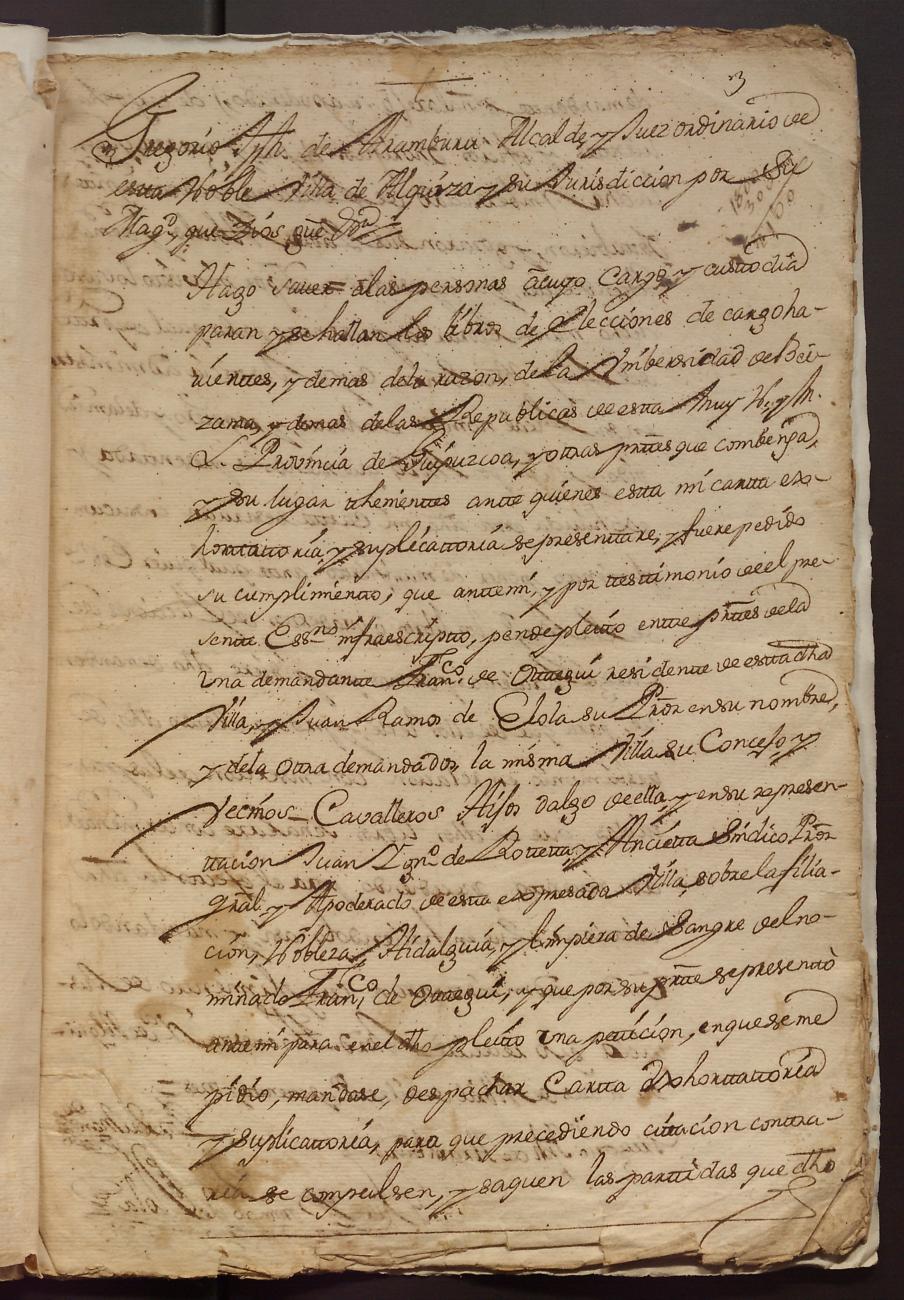 3
Gregorio Jph. de Aramburu Alcalde, y Juez ordinario de
esta Noble Villa de Alquiza y su Jurisdiccion por Su
Magd. que Dios gue
Hago saver a las personas a cuyo Cargo, y custodia
paran y se hallan los libros de Elecciones de cargoha-
uientes, y demas de la razon, de la Vnibersidad de Bei-
zama, y demas de las Republicas de esta Muy N. y M.
L. Provincia de Guipuzcoa, y otras prttes que combenga,
y su lugar thenienttes antte quienes estta mi cartta exo-
horttattoria, y suplicattoria se presenttare, y fuere pedido
su cumplimientto, que antte mi, y por ttesttimonio de el pre-
sentte Essno. infraescriptto, pende pleitto entre prttes de la
vna demandantte Franco. de Otteguí residente de estta dha
Villa, y Juan Ramos de Elola su Pror en su nombre,
y de la ottra demandados, la misma Villa su Concejo, y
vecinos Cavalleros Hijos dalgo de ella, y en su represen-
ttacion Juan Ygno. de Rotteta, y Ancietta Sindico Pror
gral. y Apoderado de esta expresada Villa, sobre la filia-
cion, Nobleza, Hidalguia, y limpieza de Sangre del no-
minado Franco. de Otteguí, y que por su prtte se presentò
ante mi para en el dho pleito vna peticion, en que se me
pidio, mandase, despachar Cartta Exhorttattoria
y suplicattoria, para que precediendo cittacion conttra-
ria se compulsen, y saquen las parttidas que dho